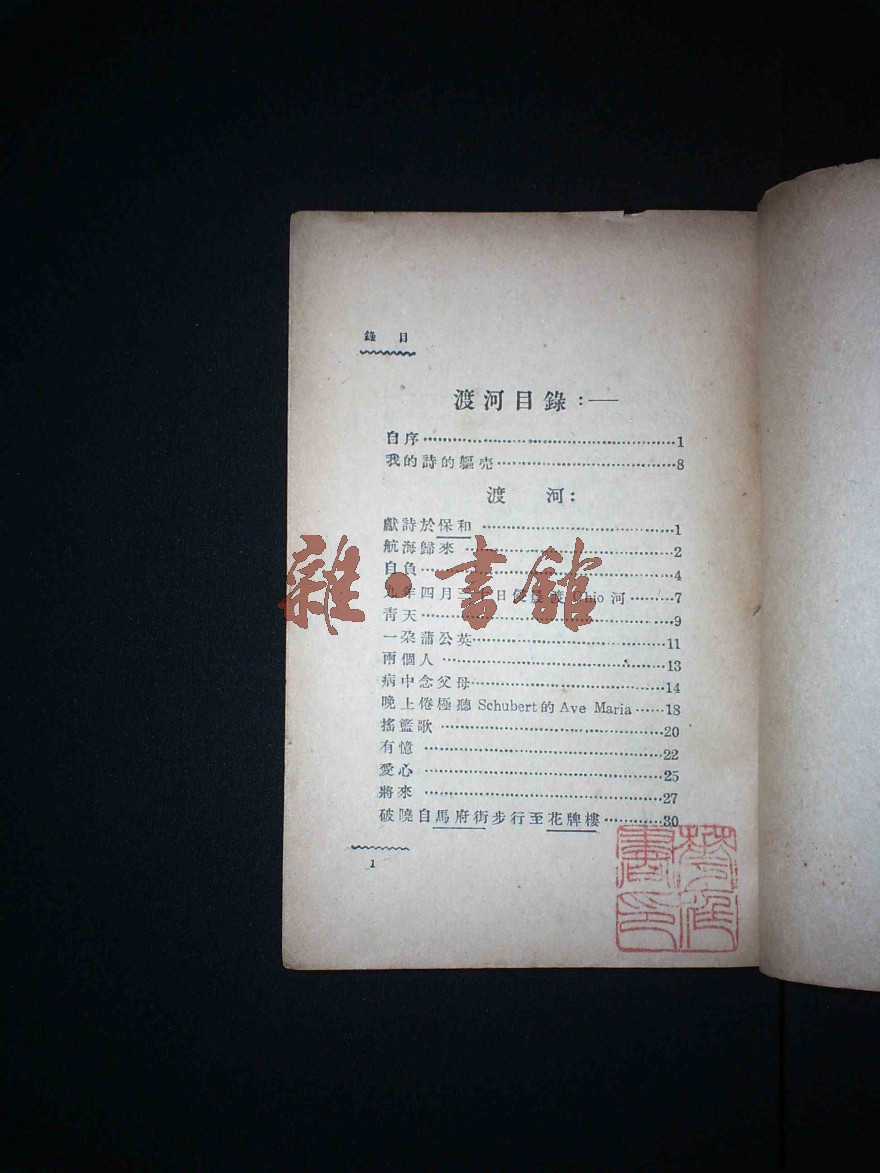 錄目
渡河目錄：——
自序……………………1
我的詩的軀壳……………………8
渡　河：
獻詩於保和……………………1
航海歸來……………………2
自負……………………4
九年四月三十日侵晨渡Ohio河………7
青天……………………9
一朶蒲公英……………………11
兩個人……………………13
病中念父母……………………14
晚上倦極聽Schubert的Ave Maria……18
搖籃歌……………………20
有憶……………………22
愛心……………………25
將來……………………27
破曉自馬府街步行至花牌樓…………30
1
雜·書館